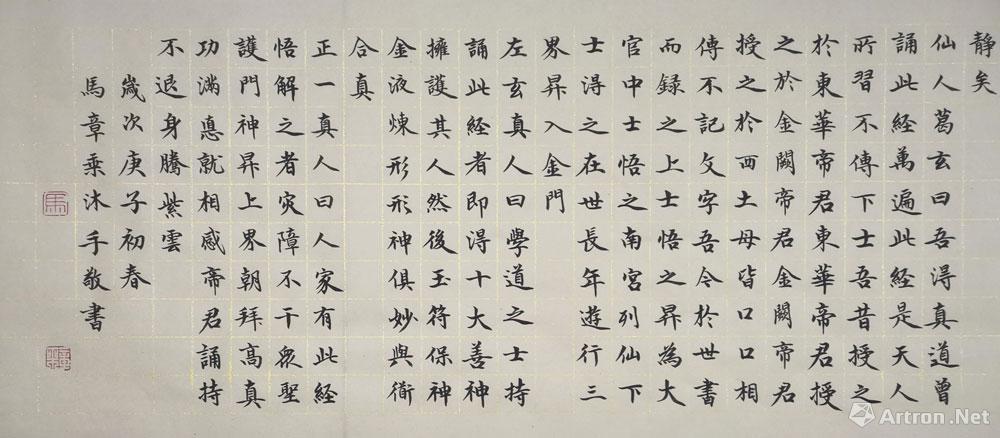 静矣
仙人葛玄曰吾得真道曾
誦此経萬遍此経是天人
所習不傳下士吾昔授之
於東華帝君東華帝君授
之於金闕帝君金闕帝君
授之於西土母皆口口相
傳不記文字吾今於世書
而録之上士悟之昇為大
官中士悟之南宮列仙下
士得之在世長年遊行三
界昇入金門
左玄真人曰學道之士持
誦此経者即得十大善神
擁護其人然後玉符保神
金液煉形形神俱妙與衜
合真
正一真人曰人家有此経
悟解之者灾障不干衆聖
護門神昇上界朝拜高真
功滿悳就相感帝君誦持
不退身騰紫雲
嵗次庚子初春
馬章乘沐手敬書
馬
Artron.Net